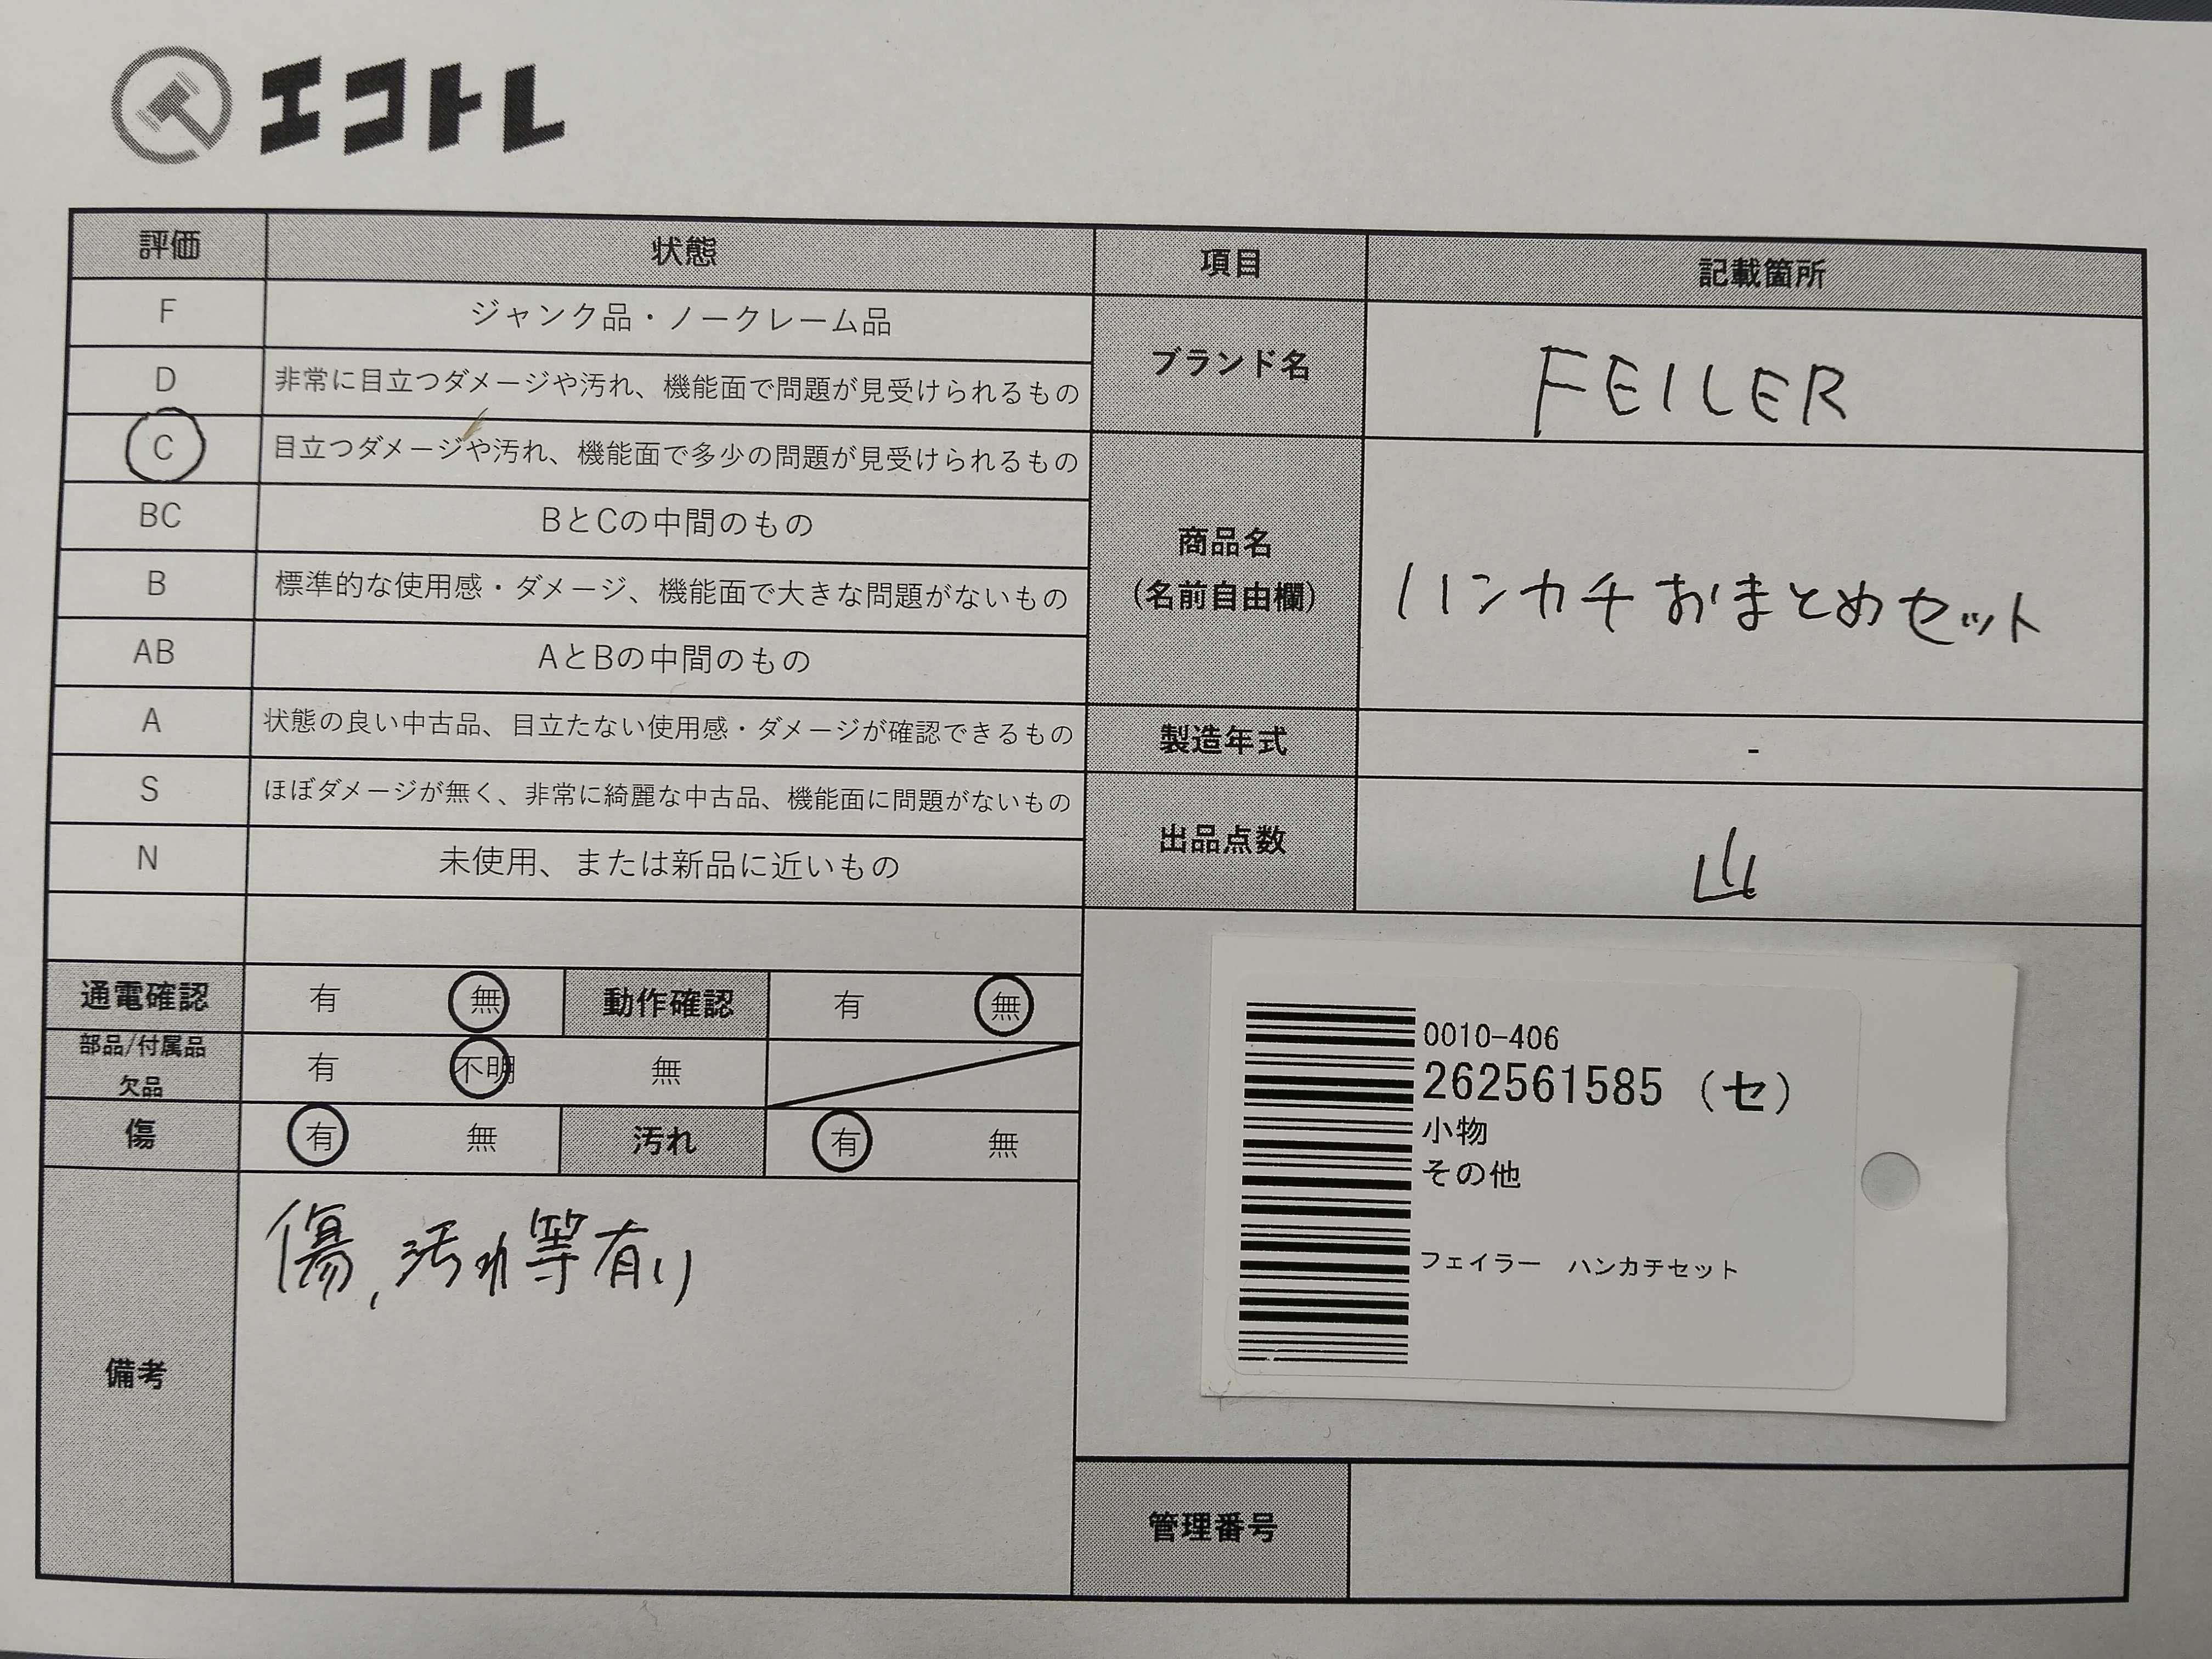 エコトレ
評価 状態 項目 記載箇所
F ジャンク品・ノークレーム品
D 非常に目立つダメージや汚れ、機能面で問題が見受けられるもの
C 目立つダメージや汚れ、機能面で多少の問題が見受けられるもの
BC BとCの中間のもの
B 標準的な使用感・ダメージ、機能面で大きな問題がないもの
AB AとBの中間のもの
A 状態の良い中古品、目立たない使用感・ダメージが確認できるもの
S ほぼダメージが無く、非常に綺麗な中古品、機能面に問題がないもの
N 未使用、または新品に近いもの
ブランド名 FEILER
商品名
(名前自由欄) ハンカチおまとめセット
製造年式 -
出品点数 山
通電確認 有 無 動作確認 有 無
部品/付属品
欠品 有 不明 無
傷 有 無 汚れ 有 無
備考 傷、汚れ等有り
0010-406
262561585 (セ)
小物
その他
フェイラー ハンカチセット
管理番号